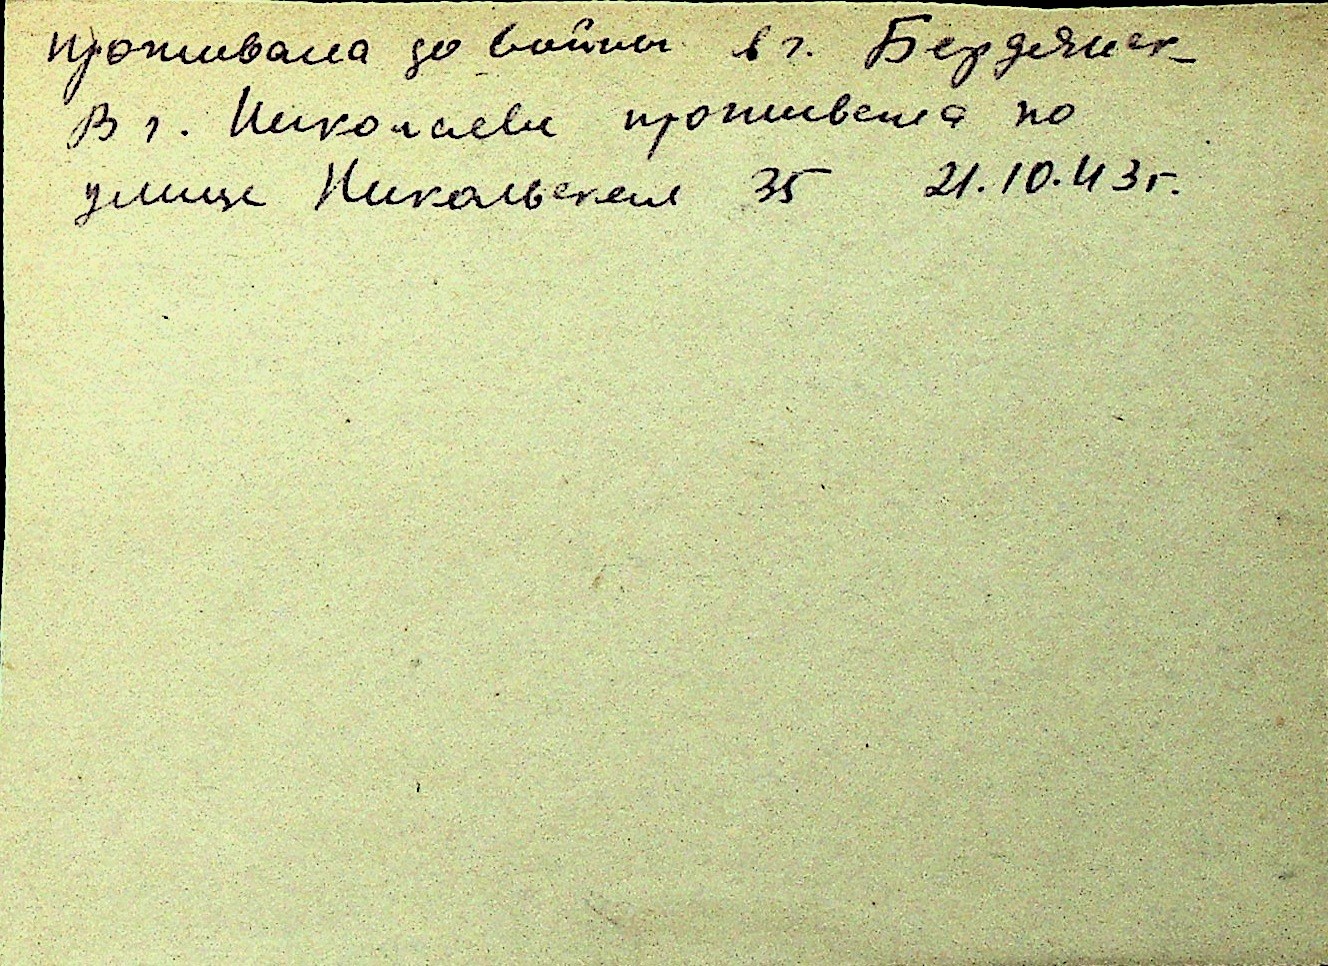 Проживала до войны в г. Бердянск
В г. Николаеве проживала по
улице Никольская 35 21.10.43 г.